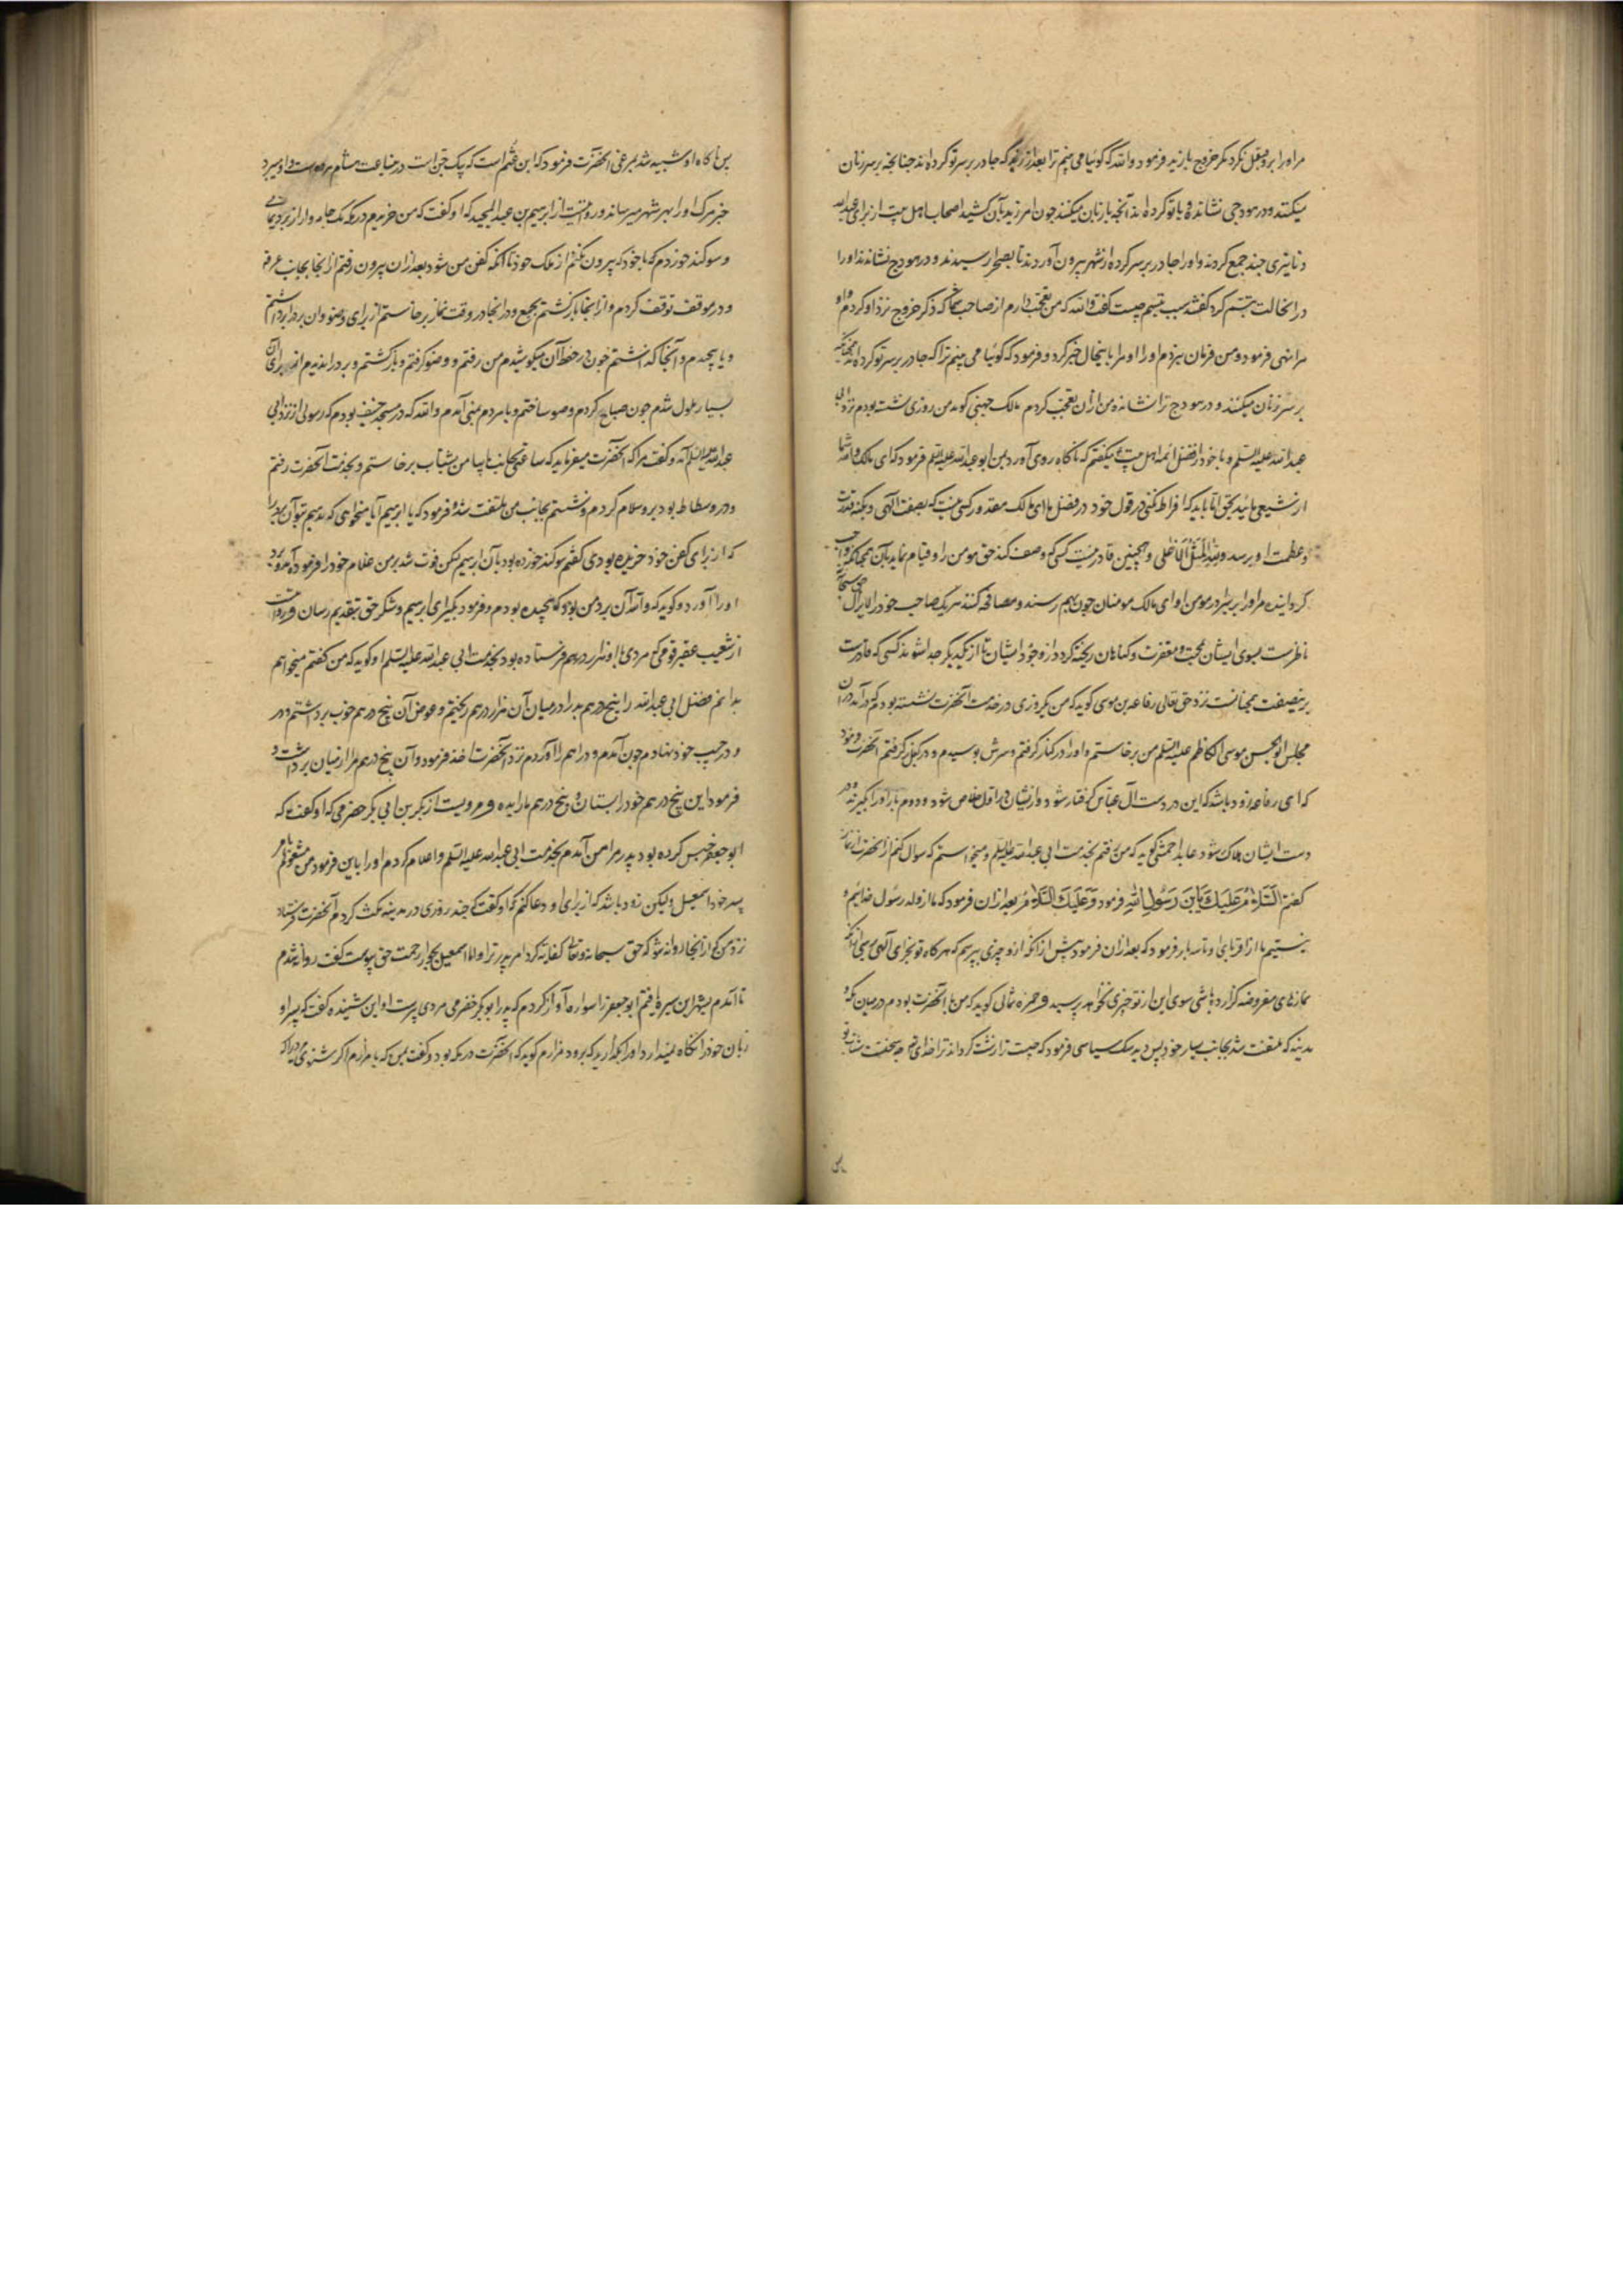 مرا و را برد و نقل نکرد مکر خروج با زید فرمود والله که کوئیا می بینم ترا بعد از زید که جادر بر سر تو کرده اند جنانجه بر سر زنان
میکنند و در هودجی نشانده و با تو کرده اند آنجه با زنان میکنند جون امر زید بآن کشید اصحاب اهل بیت از برای عبدالله
دنانیری جند جمع کردند و او را جادر بر سر کرده از شهر بیرون آوردند تا بصحرا رسیدند و در هودج نشاندند او را
در انحالت تبسم کرد کفتند سبب تبسم چیست کفت والله که من تعجب دارم از صاحب شما که ذکر خروج نزد او کردم و او
مرا نهی فرمود و من فرمان نبردم او را او مرا باینحال خبر کرد و فرمود که کوئیا می بینم ترا که جادر بر سر تو کرده اند همچنانکه
بر سر زنان میکنند و در هودج ترا نشانده من ازان تعجب کردم مالک جهنی کوید من روزی نشسته بودم نزد ابی
عبدالله علیه السلم و با خود از فضل ائمه اهل بیت میکفتم که ناکاه روی آورد بمن ابو عبدالله علیه السلم فرمود که ای مالک والله شما
از شیعه مائید بحق اما باید که افراط نکنی در قول خود در فضل ما ای مالک مقدور کسی نیست که بصفت الهی و بکنه قدرت
و عظمت او برسد ولله المثل الاعلی و همچنین قادر نیست کسی که وصف کند حق مومن را و قیام نماید بآن همچنانکه واجب
کردانیده مر او را بر برادر مومن او ای مالک مومنان جون بهم رسند و مصافحه کنند هر یک صاحب خود را لایزال حق سبحانه
ناظرست بسوی ایشان بمحبت و مغفرت و کناهان ریخته کردد از وجود ایشان تا از یکدیکر جدا شوند کسی که قادرست
برینصفت همچنانست نزد حق تعالی رفاعه بن موسی کوید که من یکروزی در خدمت آنحضرت نشسته بودم که در آمد دران
مجلس ابو الحسن موسی الکاظم علیه السلم من برخاستم و او را در کنار کرفتم و سرش بوسیدم و در بغل کرفتم آنحضرت فرمود
که ای رفاعه زود باشد که این در دست آل عباس کرفتار شود و از یشان در اول خلاص شود و دوم بار او را بکیرند و در
دست ایشان هلاک شود عابد احمسی کوید که من رفتم بخدمت ابی عبدالله علیه السلم و میخواستم که سوال کنم از آنحضرت از نماز
کفتم السَّلَامُ عَلَیكَ یَابنَ رَسُولِ اللهِ فرمود وَعَلَیكَ السَّلَامُ بعد ازان فرمود که ما از ولد رسول خدائیم و
نیستیم ما از اقربای او تا سه بار فرمود که بعد ازان فرمود پیش از آنکه ازو چیزی بپرسم که هرکاه تو بجزای الهی برسی بعد از آنکه
نمازهای مفروضه کزارده باشی سوی این از تو چیزی نخواهد پرسید و حمزه ثمالی کوید که من با آنحضرت بودم در میان مکه و
مدینه که ملتفت شد بجانب یسار خود پس دید سک سیاهی فرمود که جیست ترا زشت کرداند ترا خدای تع جه سختست شتاب تو
پس
پس ناکاه او شبیه شد بمرغی آنحضرت فرمود که این عثم است که پیک جن است درین ساعت هشام مرده است و او میبرد
خبر مرک او را بهر شهر میرساند و روایتیست از ابرهیم بن عبد الحمید که او کفت که من خریدم در مکه یک جامه وار از برد یمانی
و سوکند خوردم که با خود که بیرون نکنم از ملک خود تا آنکه کفن من شود بعد ازان بیرون رفتم از انجا بجانب عرفه
و در موقف توقف کردم و از انجا بازکشتم بجمع و در انجا در وقت نماز برخاستم از برای وضو و آن برد را برداشتم
و پا پیچدم و آنجا که انداشتم جون در حفظ آن میکوشیدم من رفتم و وضو کرفتم و بازکشتم و برد را ندیدم از برای آن
بسیار ملول شدم جون صباح کردم وضو ساختم و با مردم بمنی آمدم والله که در مسجد خیف بودم که رسولی از نزد ابی
عبدالله علیه السلم آمد و کفت مرا که آنحضرت میفرماید که ساعتی بجانب ما بیا من بشتاب برخاستم و بخدمت آنحضرت رفتم
و در فسطاط بود برو سلام کردم و نشستم بجانب من ملتفت شد و فرمود که یا ابرهیم آیا میخواهی که بدهیم بتو آن برد را
که از برای کفن خود خریده بودی کفتم سوکند خورده بود بآن ابرهیم لیکن فوت شد بر من غلام خود را فرمود تا برد
او را آورد و کوید که والله آن برد من بود که پیچیده بودم و فرمود بکیر ای ابرهیم و شکر حق بتقدیم رسان و روایت
از شعیب عقرقوفی که مردی با او هزار درهم فرستاده بود بخدمت ابی عبدالله علیه السلم او کوید که من کفتم میخواهم
بدانم فضل ابی عبدالله را پنج درهم بد را در میان آن هزار درهم ریختم و عوض آن پنج درهم خوب برداشتم و در
و در جیب خود نهادم جون آمدم و دراهم را آوردم نزد آنحضرت اخذ فرمود و آن پنج درهم مرا از میان برداشت و
فرمود این پنج درهم خود را بستان و پنج درهم ما را بده و مرویست از بکر بن ابی بکر حضرمی که او کفت که
ابو جعفر حبس کرده بود پدر مرا من آمدم بخدمت ابی عبدالله علیه السلم و اعلام کردم او را باین فرمود من مشغولم بامر
پسر خود اسمعیل ولیکن زود باشد که از برای او دعا کنم که او کفت که چند روزی در مدینه مکث کردم آنحضرت فرستاد
نزد من که از انجا روانه شو که حق سبحانه و تعالی کفایت کرد امر پدر ترا و اما اسمعیل بجوار رحمت حق پیوست کفت روانه شدم
تا آمدم بشهر ابن هبیره یافتم ابو جعفر را سواره آواز کردم که پدر ابو بکر حضرمی مردی پیرست او این شنیده کفت که پسر او
زبان خود را نکاه نمیدارد او را بکذارید که برود مرازم کوید که آنحضرت در مکه بود و کفت بمن که یا مرازم اکر بشنوی